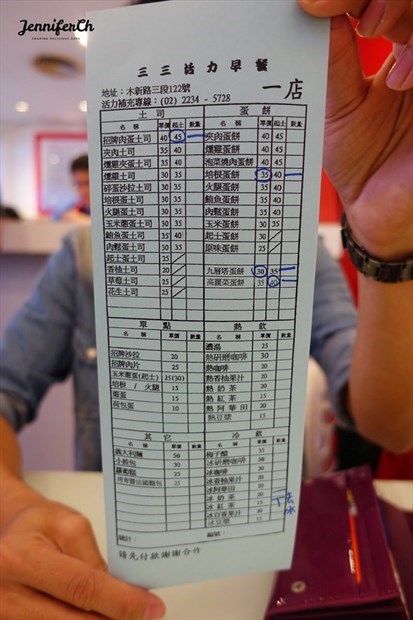 JenniferCh
三三活力早餐
地址：木新路三段122號
活力補充專線：(02) 2234 - 5728
一店
土司
名稱 單價 起士 數量
招牌肉蛋土司 40 45
夾肉土司 35 40
燻雞夾蛋土司 35 40
燻雞土司 30 35
碎蛋沙拉土司 30 35
培根蛋土司 30 35
火腿蛋土司 30 35
玉米蔥蛋土司 30 35
鮪魚蛋土司 30 35
肉鬆蛋土司 30 35
起士蛋土司 25
香柚土司 20
草莓土司 25
花生土司 25
蛋餅
名稱 單價 起士 數量
夾肉蛋餅 40 45
燻雞蛋餅 40 45
泡菜燒肉蛋餅 40 45
培根蛋餅 35 40
火腿蛋餅 35 40
鮪魚蛋餅 35 40
肉鬆蛋餅 35 40
玉米蛋餅 30 35
起士蛋餅 30
原味蛋餅 25
九層塔蛋餅 30 35
高麗菜蛋餅 35 40
單點
名稱 單價 數量
招牌沙拉 20
招牌肉片 25
玉米蔥蛋(起士) 25(30)
培根 / 火腿 15
蔥蛋 15
荷包蛋 10
熱飲
名稱 單價 數量
濃湯 25
熱研磨咖啡 30
熱咖啡 20
熱香柚果汁 20
熱奶茶 20
熱紅茶 15
熱阿華田 20
熱豆漿 15
其它
名稱 單價 數量
義大利麵 50
小穀包 30
蘿蔔糕 25
冷飲
名稱 單價 數量
梅子醋 35
冰研磨咖啡 30
冰咖啡
冰香柚果汁
冰阿華田
冰奶茶
冰紅茶
冰百香果汁
冰豆漿
去冰
總計：
編號：
請先付款謝謝合作